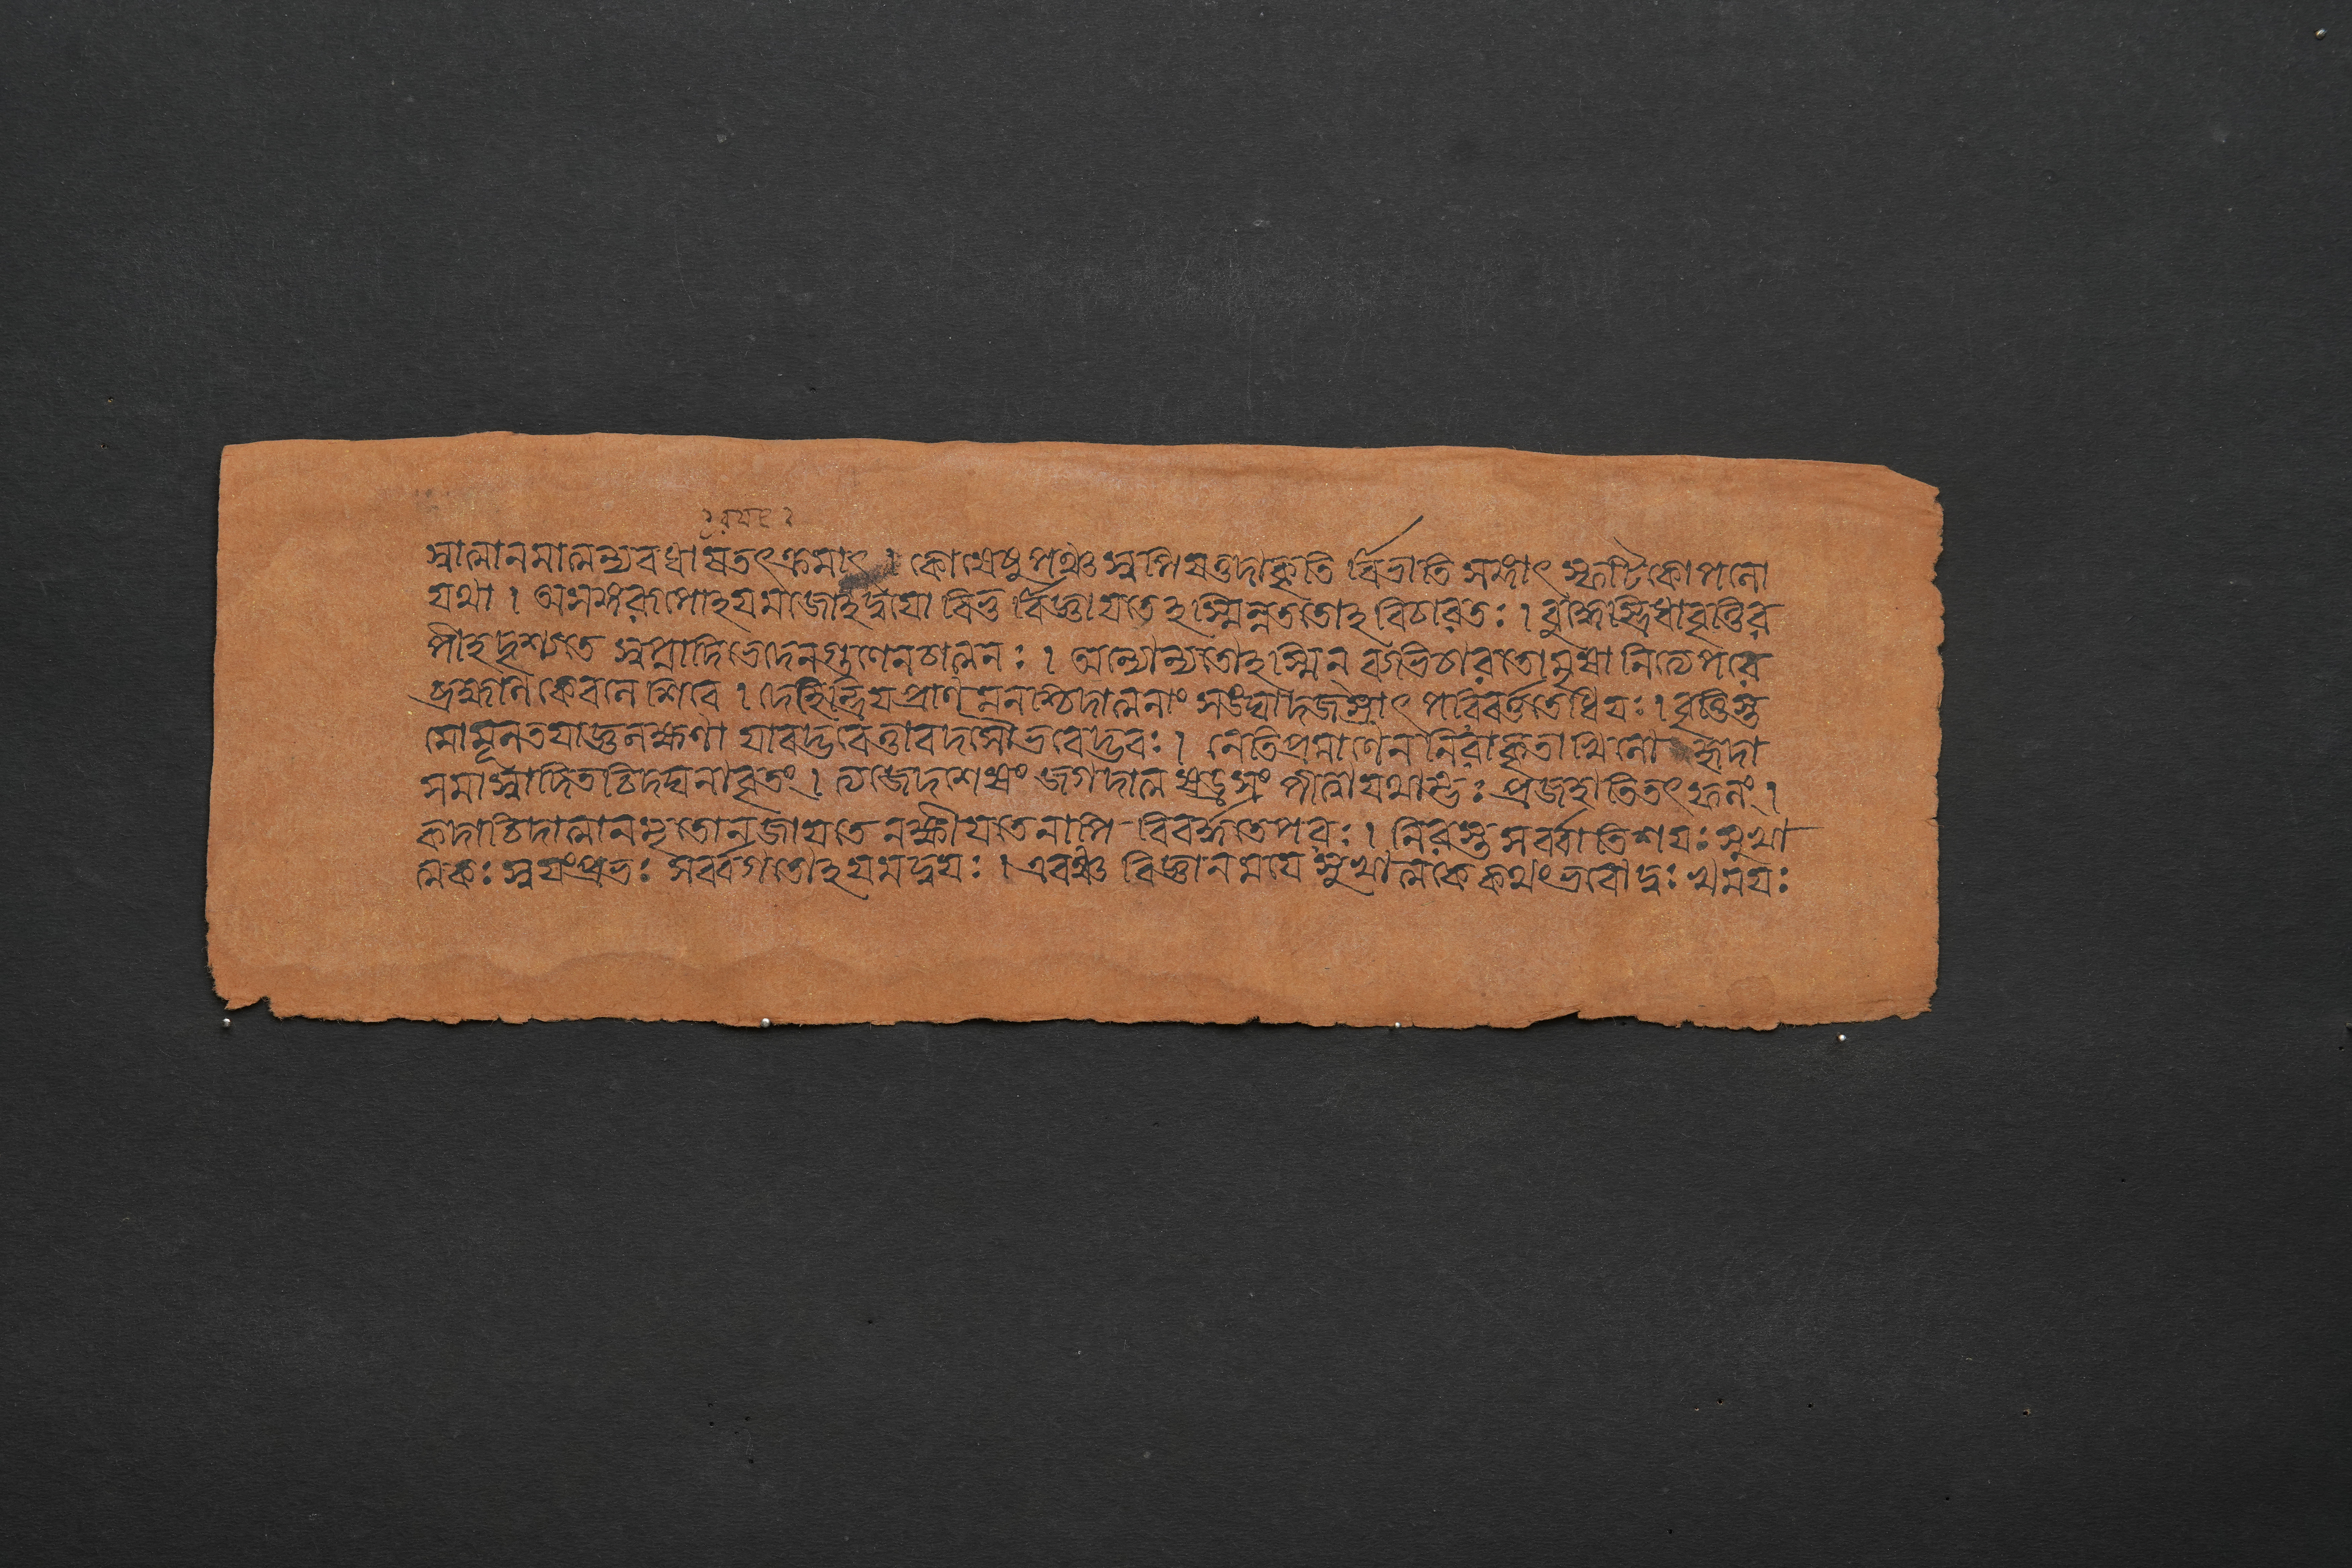 রযে
স্বাত্মানমাত্মন্যবধার্ষতৎক্রমাৎ । কোষেষু পঞ্চস্বপি ষত্তদাকৃতি র্বিভাতি সঙ্গাৎ স্ফটিকোপলো
যথা । অসঙ্গরূপোঽযমজোঽদ্বযো বিভু র্বিজ্ঞাযতেঽস্মিন্নততোঽবিচারতঃ । বুদ্ধেস্ত্রিধাবৃত্তির
পীহদৃশ্যতে স্বপ্নাদিভেদেনগুণেনচাত্মনঃ । অন্যোন্যতোঽস্মিন্ ব্যভিচারতোমৃষা নিত্যেপরে
ব্রহ্মণি কেবলে শিবে । দেহেন্দ্রিযপ্রাণমনশ্চিদাত্মনাং সঙঘাদজস্রাৎ পরিবর্ত্ততেধিযঃ । বৃত্তিস্ত
মোমূলতযাজ্ঞলক্ষণা যাবদ্ভবেত্তাবদসৌভবেদ্ভবঃ । নেতিপ্রমাণেন নিরাকৃতাখিলো হৃদা
সমাস্বাদিতচিদঘনামৃতং । ত্যজেদশেষং জগদাত্মষড্রসং পীত্বাযথাম্ভঃ প্রজহাতিতৎফলং ।
কদাচিদাত্মানমৃতোনজাযতে নক্ষীযতেনাপি বিবর্দ্ধতেপরঃ । নিরস্তসর্ব্বাতিশযঃ সুখা
ত্মকঃ স্বযংপ্রভঃ সর্ব্বগতোঽযমদ্বযঃ । এবঞ্চ বিজ্ঞানমযে সুখাত্মকে কথংভবোদুঃ খমযঃ